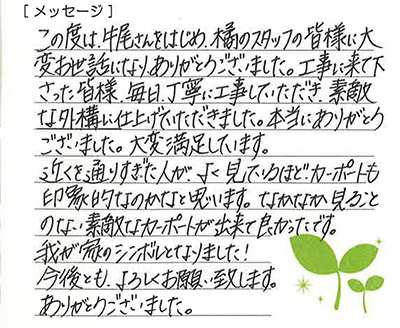 [メッセージ]
この度は、牛尾さんをはじめ、橘のスタッフの皆様に大
変お世話になり、ありがとうございました。工事に来て下
さった皆様、毎日、丁寧に工事していただき、素敵
な外構に仕上げていただきました。本当にありがとう
ございました。大変満足しています。
近くを通りすぎた人が、よく見ているほどカーポートも
印象的なのかなと思います。なかなか見ること
のない素敵なカーポートが出来て良かったです。
我が家のシンボルとなりました！
今後とも、よろしくお願い致します。
ありがとうございました。